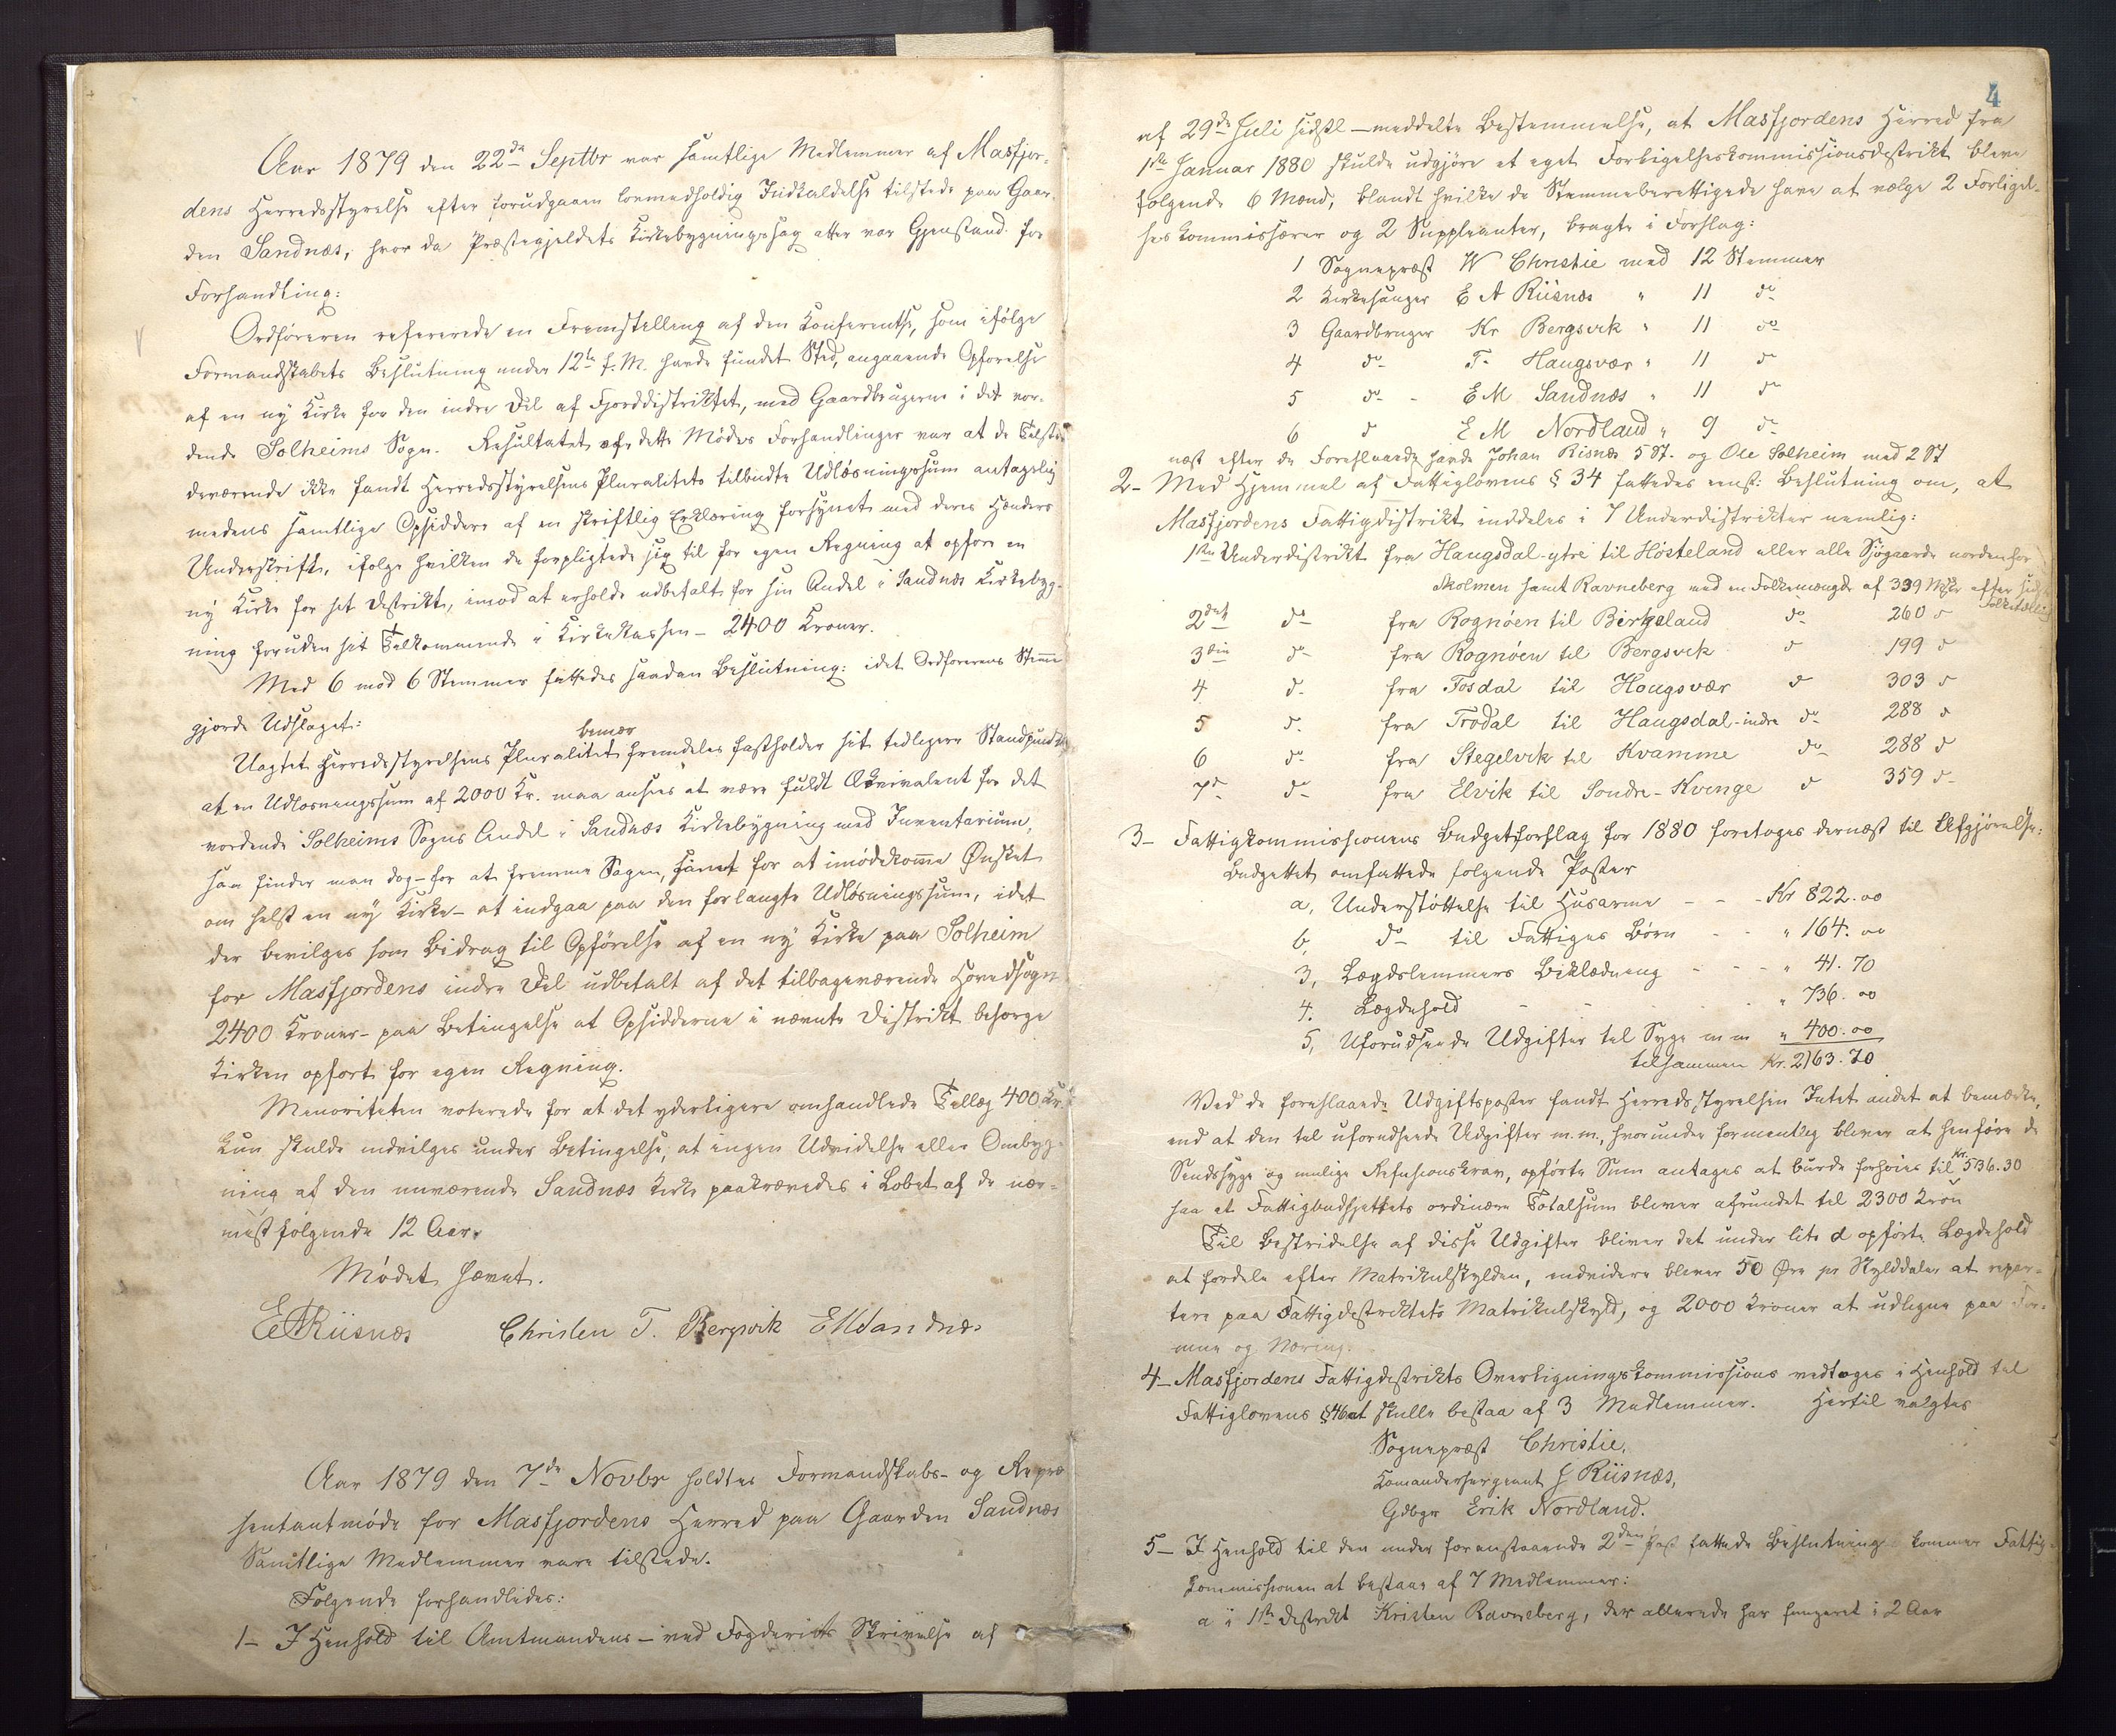 Aar 1879 den 22de Septbr var samtlige Medlemmer af Masfjor-
dens Herredsstyrelse efter forudgaaen lovmedholdig Indkaldelse tilstede paa Gaar-
den Sandnæs, hvor da Præstegjeldets Kirkebygningssag atter var Gjenstand for
Forhandling:
Ordføreren refererede en Fremstilling af den Konferents, som ifølge
Formandskabets Beslutning under 12te f. M. havde fundet Sted, angaaende Opførelse
af en ny Kirke for den indre Del af Fjorddistriktet, med Gaardbrugerne i det vor-
dende Solheims Sogn. Resultatet af dette Mødes Forhandlinger var at de Tilste-
deværende ikke fandt Herredsstyrelsens Pluralitets tilbudte Udløsningssum antagelig
medens samtlige Opsiddere af en skriftlig Erklæring forsynet med deres Hænders
Underskrift, ifølge hvilken de forpligtede sig til for egen Regning at opføre en
ny Kirke for sit Distrikt, imod at erholde udbetalt for sin Andel i Sandnæs Kirkebyg-
ning foruden sit Tilkommende i Kirkekassen - 2400 Kroner.
Med 6 mod 6 Stemmer fattedes saadan Beslutning: idet Ordførerens Stemme
gjorde Udslaget:
Uagtet Herredsstyrelsens Pluralitet fremdeles fastholder sit tidligere Standpunkt,
at en Udløsningssum af 2000 Kr. maa ansees at være fuldt Ækvivalent for det
vordende Solheims Sogns Andel i Sandnæs Kirkebygning med Inventarium,
saa finder man dog - for at fremme Sagen, samt for at imødekomme Ønsket
om helst en ny Kirke - at indgaa paa den forlangte Udløsningssum, idet
der bevilges som Bidrag til Opførelse af en ny Kirke paa Solheim
for Masfjordens indre Del udbetalt af det tilbageværende Hovedsogn
2400 Kroner - paa Betingelse at Opsidderne i nævnte Distrikt besørge
Kirken opført for egen Regning.
Minoriteten voterede for at det yderligere omhandlede Tillæg 400 Kr.
kun skulde indvilges under Betingelse, at ingen Udvidelse eller Ombyg-
ning af den nuværende Sandnæs Kirke paakrævedes i Løbet af de nær-
mest følgende 12 Aar.
Mødet hævet.
E A Riisnæs Christen T. Bergsvik E M Sandnæs
Aar 1879 den 7de Novbr holdtes Formandskabs- og Repræ
sentantmøde for Masfjordens Herred paa Gaarden Sandnæs
Samtlige Medlemmer vare tilstede.
Følgende forhandledes:
1- I Henhold til Amtmandens - ved Fogderiets Skrivelse af
4
af 29de Juli sidstl - meddelte Bestemmelse, at Masfjordens Herred fra
1ste Januar 1880 skulde udgjøre et eget Forligelseskommissionsdistrikt bleve
følgende 6 Mænd, blandt hvilke de Stemmeberettigede have at vælge 2 Forligel-
seskommissærer og 2 Suppleanter, bragte i Forslag:
1 Sognepræst W Christie med 12 Stemmer
2 Kirkesanger E A Riisnæs " 11 do
3 Gaardbruger Kr Bergsvik " 11 do
4 do T. Haugsvær " 11 do
5 do - E M Sandnæs " 11 do
6 do E M Nordland " 9 do
næst efter de Foreslaaede havde Johan Risnæs 5 St. og Ole Solheim med 2 St
2- Med Hjemmel af Fattiglovens § 34 fattedes eenst: Beslutning om, at
Masfjordens Fattigdistrikt inddeles i 7 Underdistrikter nemlig:
1ste Underdistrikt fra Haugsdal-ytre til Hosteland eller alle Søgaarde nordenfor
Skolmen samt Ravneberg med en Folkemængde af 339 Msker efter sidste
Folketælling
2det do fra Rognøen til Birkeland do 260 do
3die do fra Rognøen til Bergsvik do 199 do
4 do fra Fosdal til Hougsvær do 303 do
5 do fra Trodal til Haugsdal-indre do 288 do
6 do fra Stegelvik til Kvamme do 288 do
7de do fra Elvik til Sondre-Kvinge do 359 do
3- Fattigkommissionens Budgetforslag for 1880 foretoges dernæst til Afgjørelse:
Budgettet omfattede følgende Poster
a, Understøttelse til Husarme - - - Kr 822.00
b, do til Fattiges Børn - - " 164.00
3, Lægdslemmers Beklædning - - - " 41.70
4. Lægdehold - - - " 736.00
5, Uforudseede Udgifter til Syge m m " 400.00
tilsammen Kr. 2163.70
Ved de foreslaaede Udgiftsposter fandt Herredsstyrelsen Intet andet at bemærke,
end at den til uforudseede Udgifter m.m., hvorunder formentlig bliver at henføre de
Sindssyge og mulige Refusionskrav, opførte Sum antages at burde forhøies til Kr. 536.30
saa at Fattigbudsjettets ordinære Totalsum bliver afrundet til 2300 Kron
Til Bestridelse af disse Udgifter bliver det under litr d opførte Lægdehold
at fordele efter Matrikulskylden, endvidere bliver 50 Øre pr Skylddaler at repar-
tere paa Fattigdistriktets Matrikulskyld, og 2000 Kroner at udligne paa For-
mue og Næring.
4- Masfjordens Fattigdistrikts Overligningskommissions vedtoges i Henhold til
Fattiglovens § 46 at skulle bestaa af 3 Medlemmer. Hertil valgtes
Sognepræst Christie,
Komandersergeant J Riisnæs,
Gdbgr Erik Nordland.
5- I Henhold til den under foranstaaende 2den Post fattede Beslutning kommer Fattig-
kommissionen at bestaae af 7 Medlemmer:
a i 1ste Distrikt Kristen Ravneberg, der allerede har fungeret i 2 Aar